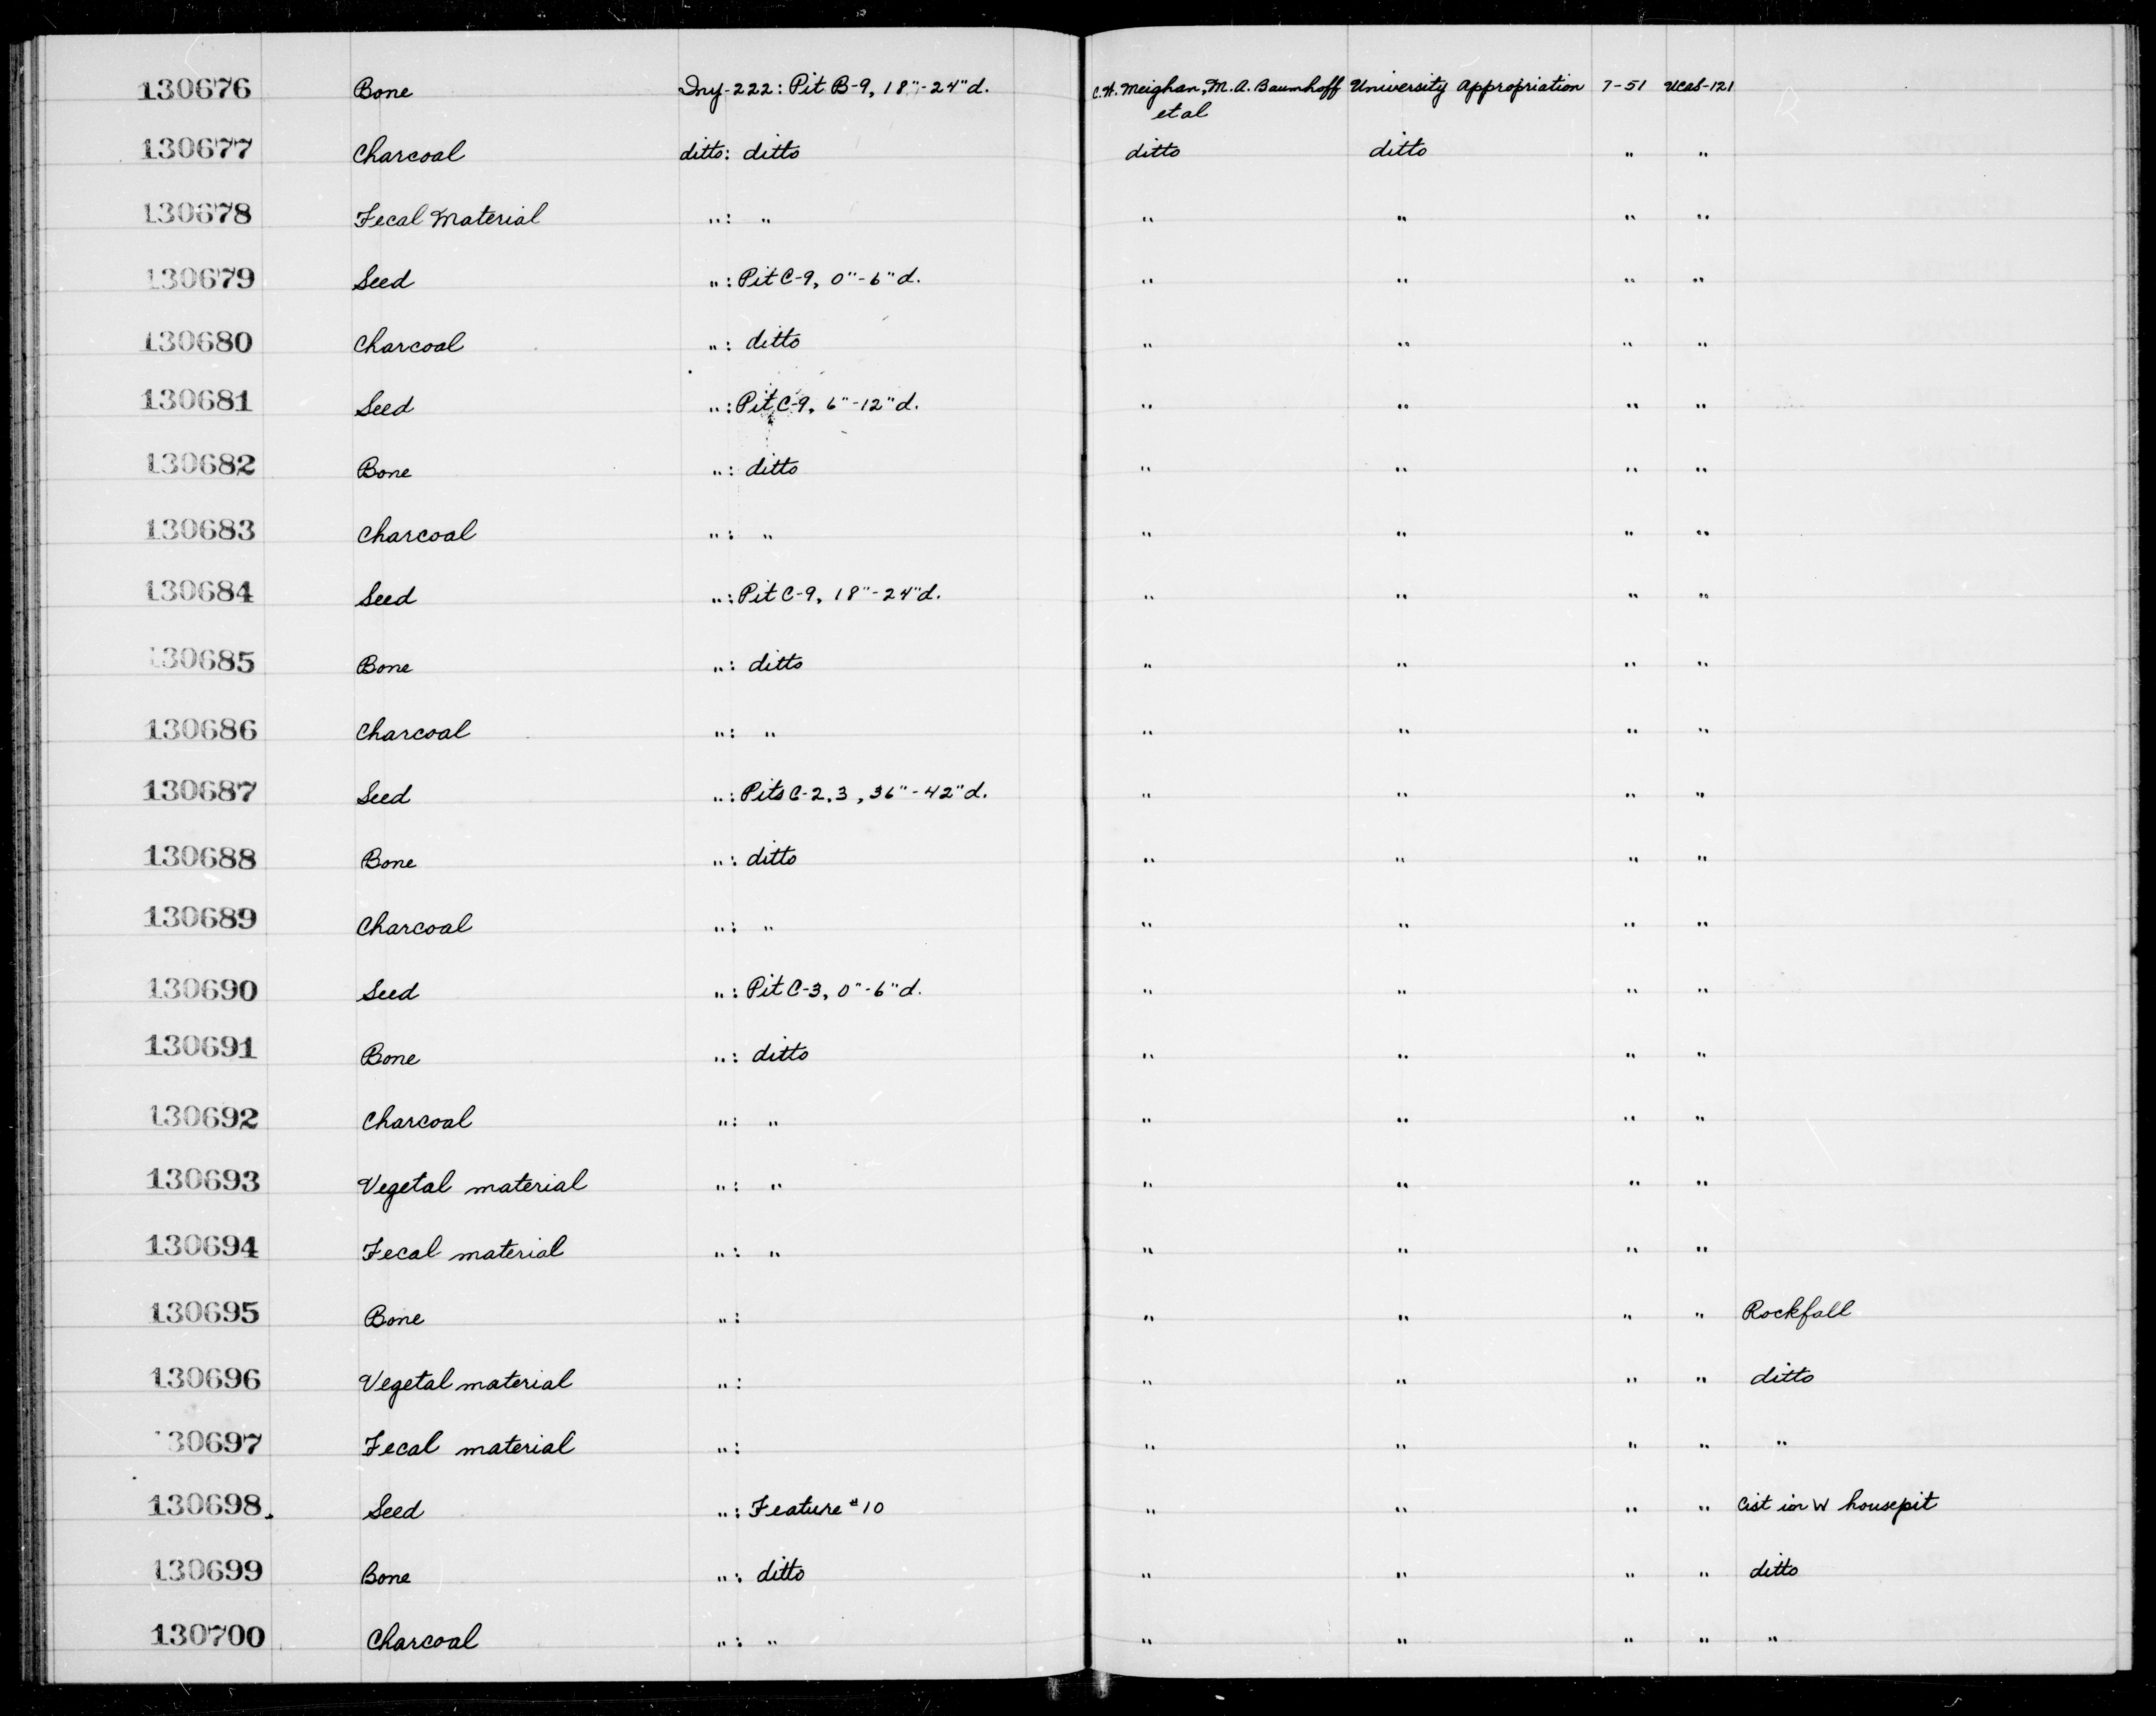 130676 Bone Iny-222: Pit B-9, 18"-24"d. C.W. Meighan, M.A. Baumhoff et al University Appropriation 7-51 UCAS-121
130677 Charcoal ditto: ditto ditto ditto " "
130678 Fecal Material ": " " " " "
130679 Seed ": Pit C-9, 0"-6"d. " " " "
130680 Charcoal ": ditto " " " "
130681 Seed ": Pit C-9, 6"-12"d. " " " "
130682 Bone ": ditto " " " "
130683 Charcoal ": " " " " "
130684 Seed ": Pit C-9, 18"-24"d. " " " "
130685 Bone ": ditto " " " "
130686 Charcoal ": " " " " "
130687 Seed ": Pits C-2,3, 36"-42"d. " " " "
130688 Bone ": ditto " " " "
130689 Charcoal ": " " " " "
130690 Seed ": Pit C-3, 0"-6"d. " " " "
130691 Bone ": ditto " " " "
130692 Charcoal ": " " " " "
130693 Vegetal material ": " " " " "
130694 Fecal material ": " " " " "
130695 Bone ": " " " " Rockfall
130696 Vegetal material ": " " " " ditto
130697 Fecal material ": " " " " "
130698. Seed ": Feature #10 " " " " Cist in W housepit
130699 Bone ": ditto " " " " ditto
130700 Charcoal ": " " " " " "